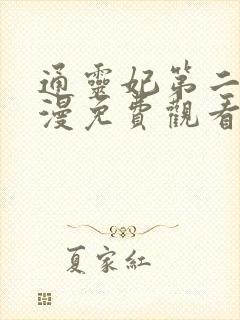 通靈妃第二
漫免費觀看
夏家紅